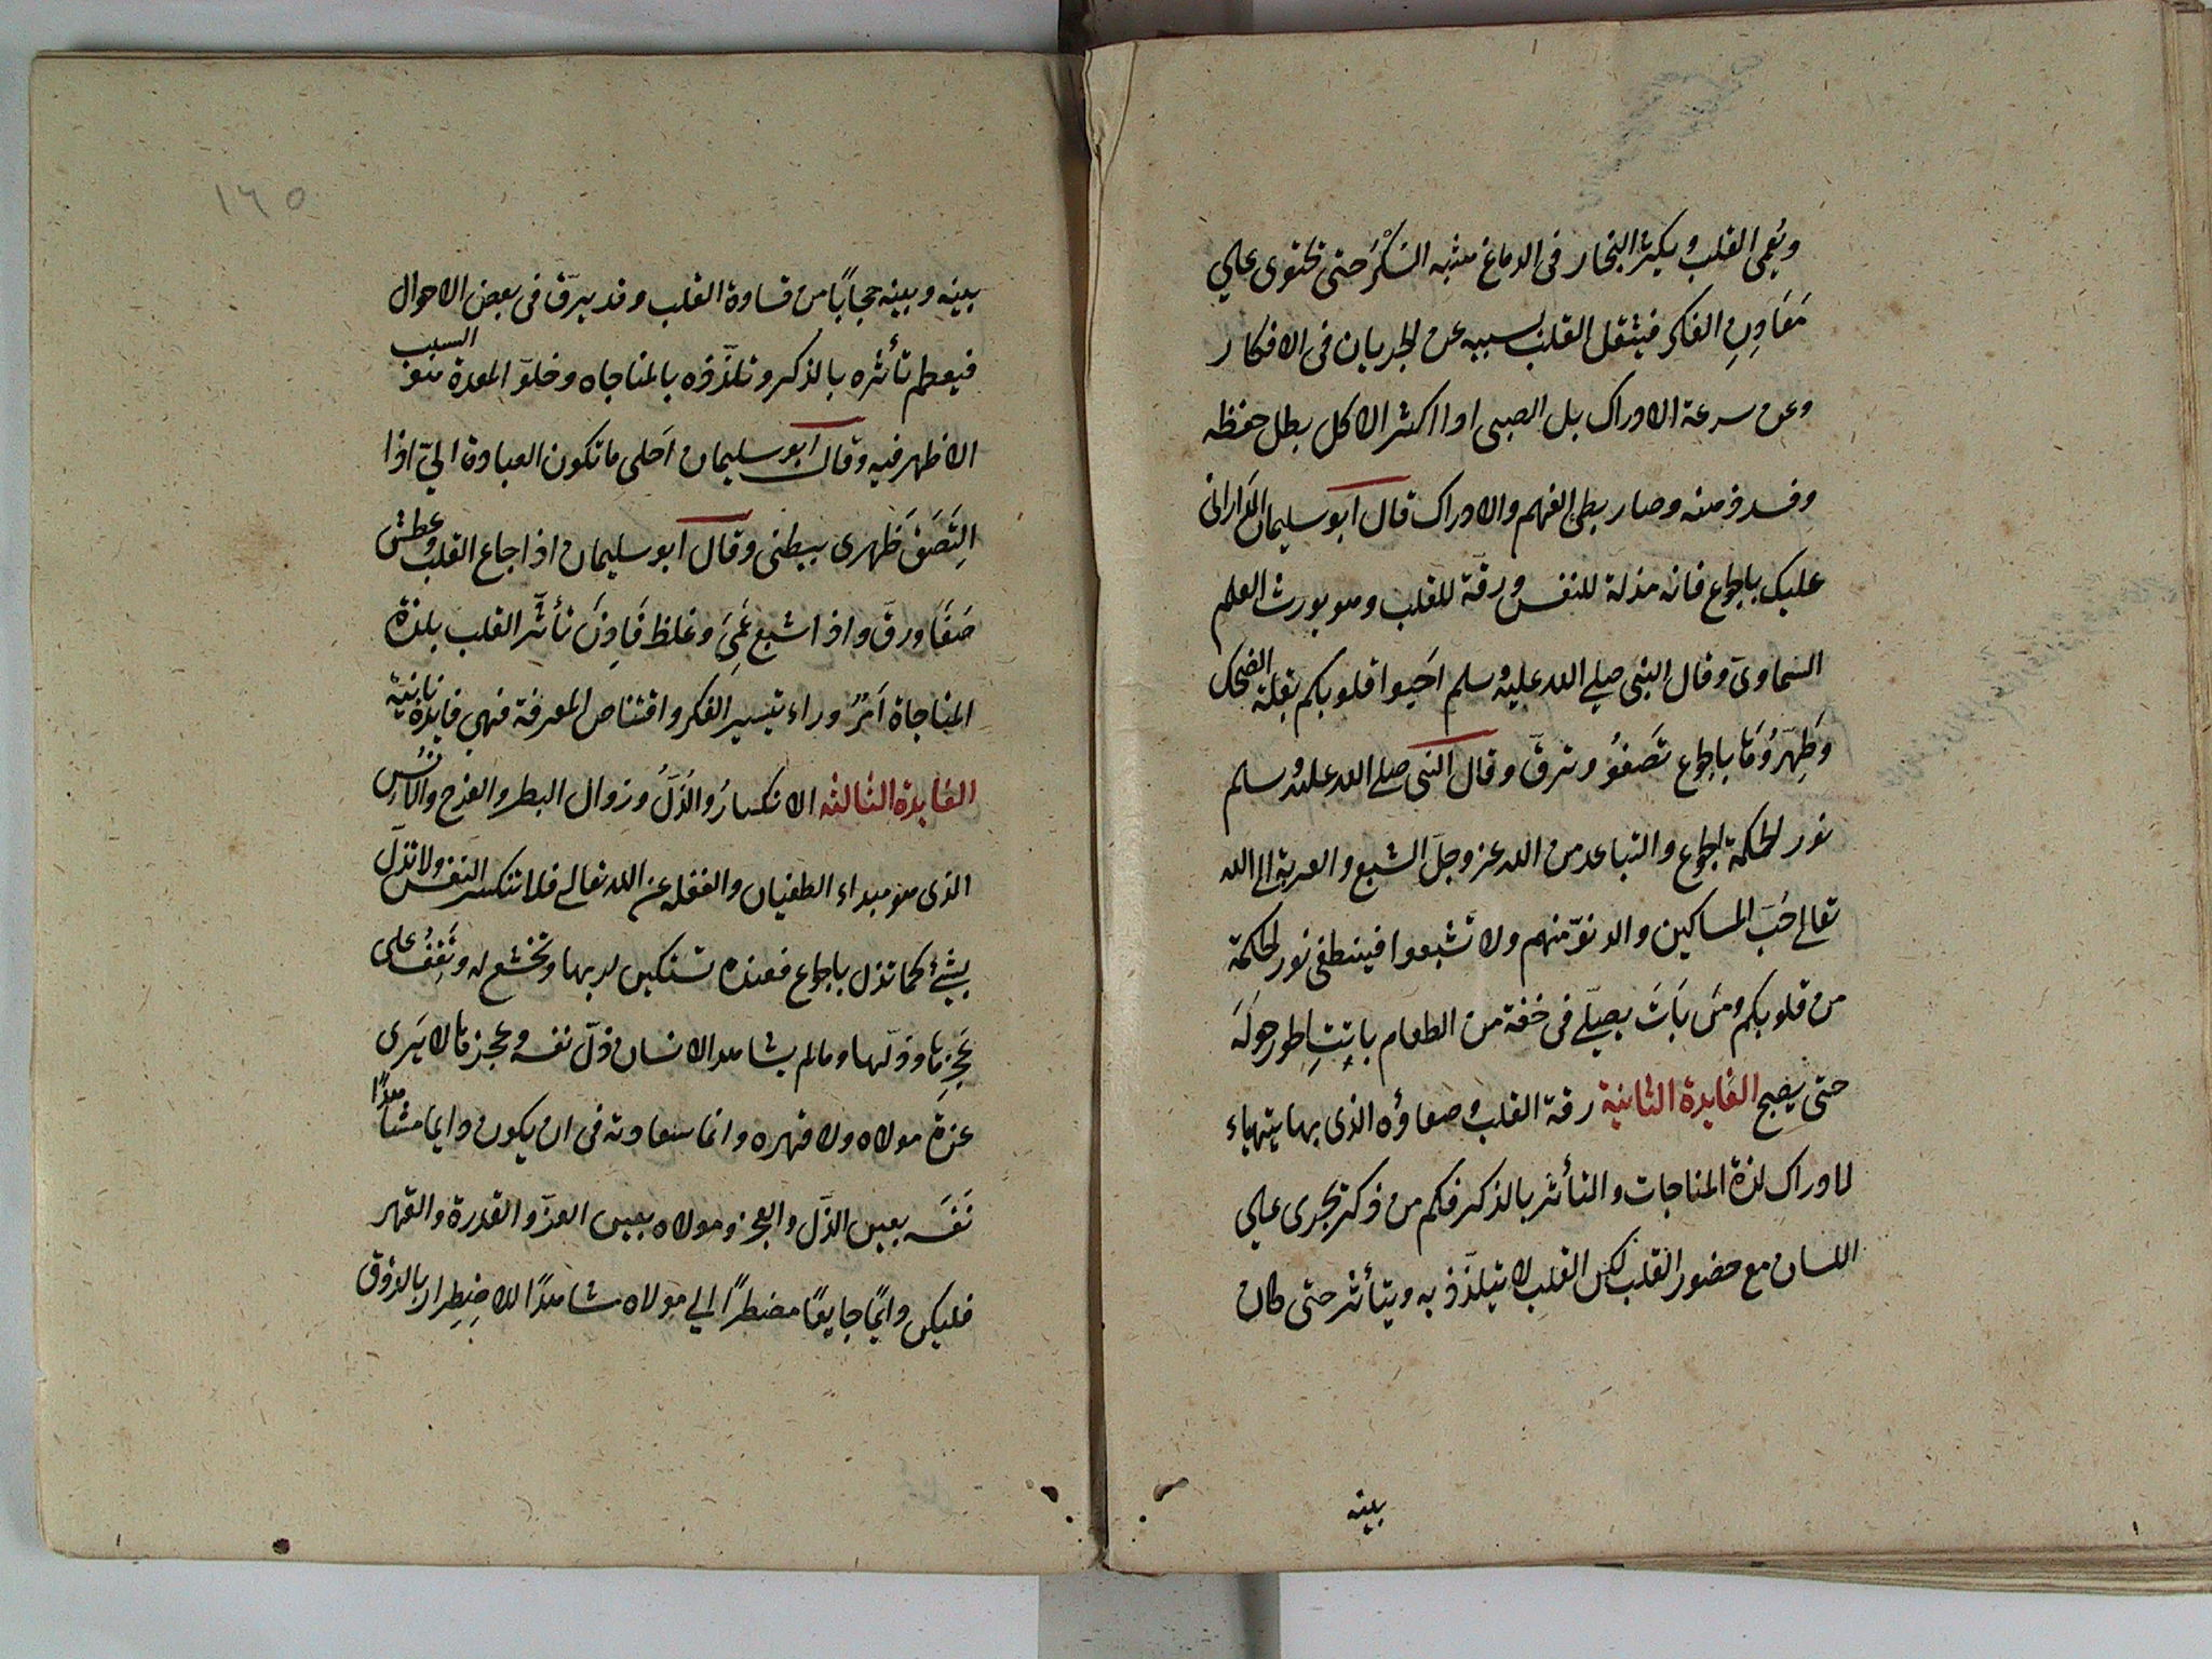 ويُعمى القلب ويكثر البخار فى الدماغ شبه السُكْرَ حتى تحتوى على
مَعَادِنِ الفكر فيثقل القلب بسببه عن الجريان فى الافكار
وعن سرعة الادراك بل الصبى اذا اكثر الاكل بطل حفظه
وفسد ذهنه وصار بطئ الفهم والادراك قال ابو سليمان الدَارانى
عليك بالجوع فانه مذلة للنفس ورقة للقلب وهو يورث العلم
السماوى وقال النبى صلى الله عليه وسلم اَحيوا قلوبكم بقلة الضحك
وَطَهِّرُوهَا بالجوع تَصفُو وترقّ وقال النبى صلى الله عليه وسلم
نور الحكمة الجوع والتباعد من الله عز وجلّ الشبع والقربة الى الله
تعالى حُبّ المساكين والدنوّ منهم ولا تشبعوا فينطفى نور الحكمة
من قلوبكم ومَن بَاتَ يصلّى فى خفة من الطعام باتت الحور حولَه
حتى يصبح الفايدة الثانية رقة القلب وصفاؤه الذى بها يتهياء
لادراك لذة المناجات والتأثر بالذكر فكم من ذكر يجرى على
اللسان مع حضور القلب لكن القلب لا يتلذّذ به ويتأثر حتى كان
بينه
١٦٥
بينه وبينه حجاباً من قساوة القلب وقد يرقّ فى بعض الاحوال
فيعظم تأثره بالذكر وتلذّذه بالمناجاه وخلوّ المعدة هو السبب
الاظهر فيه وقال ابو سليمان اَحلى ما تكون العبادة الىّ اذا
اِلتَصَقَ ظَهرى ببطنى وقال ابو سليمان اذا جاع القلب وعطش
صَفَا ورقّ واذا شبع عَمِىَ وغلظ فَاِذَن تأثّر القلب بلذة
المناجاة اَمرٌ وراء تيسير الفكر واقتناص المعرفة فهى فايدة ثانية
الفايدة الثالثة الانكسارُ والذُلُّ وزوال البطر والفرح والاَشر
الذى هو مبداء الطغيان والغفلة عن الله تعالى فلا تنكسر النفس ولا تذلّ
بشئ كما تذل بالجوع فعنده تستكين لربها وتخشع له وتَقِفُ على
عَجزِهَا وذلّها ومالم يشاهد الانسان ذلّ نفسه وعجزها لا يَرى
عزةَ مولاه ولا قهره وانما سعادته فى ان يكون دايما مشاهدًا
نَفسَه بعين الذلّ والعجز ومولاه بعين العزّ والقدرة والقهر
فليكن دايمًا جايعًا مضطرًا الى مولاه مشاهدًا للاضِطِرار بالذوق